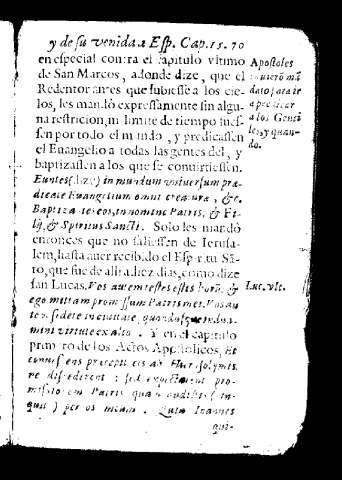 y de su venida a Esp. Cap. 15. 70
en especial contra el capitulo vltimo
de San Marcos, adonde dize, que el
Redentor antes que subiesse a los cie-
los, les mandó expressamente sin algu-
na restricion, ni limite de tiempo fues-
sen por todo el mundo, y predicassen
el Euangelio a todas las gentes del, y
baptizassen a los que se conuirtiessen.
Euntes (dize) in mundum vniuersum præ-
dicate Euangelium omni creaturæ, &c.
Baptizantes eos, in nomine Patris, & Fi-
lij, & Spiritus Sancti. Solo les mandó
entonces que no saliessen de Ierusa-
lem, hasta auer recibido el Espiritu Sã-
to, que fue de alli a diez dias, como dize
san Lucas, Vos autem testes estis horũ, &
ego mittam promissum Patris mei, Vos au
tẽ sedete in ciuitate, quoadusque indua-
mini virtute ex alto. Y en el capitulo
primero de los Actos Apostolicos, Et
conuescens precepit eis ab Hierosolymis
ne discederent: sed expectarent pro-
missionem Patris quam audistis (in-
quit) per os meum. Quia Ioannes
qui-
Apostoles
tuuierõ mã
dato para ir
a predicar
a los Genti
les, y quan-
do.
Luc. vlt.